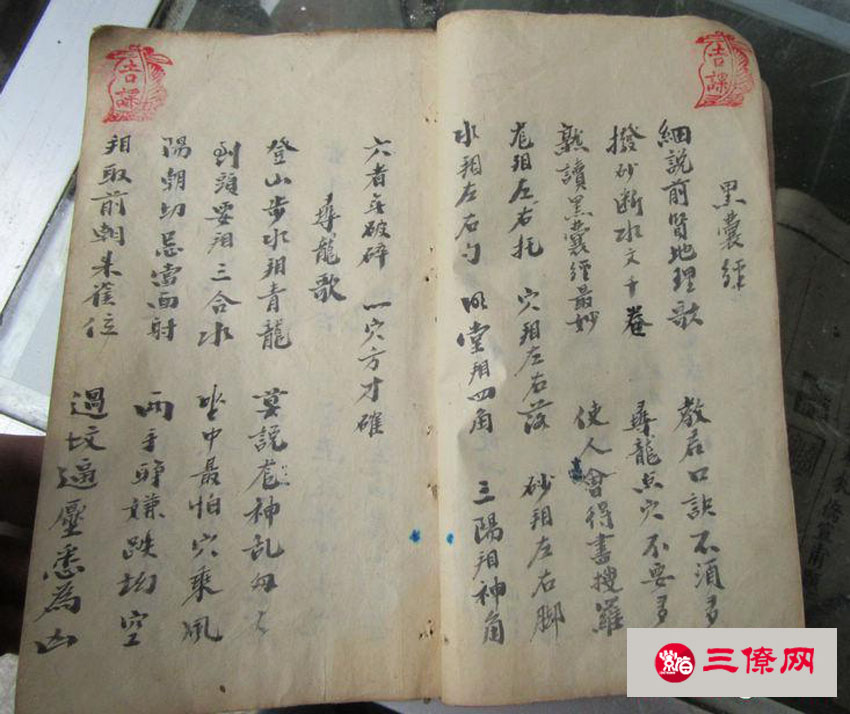 吉課
吉課
黑囊經
細說前賢地理歌 教君口訣不須多
撥砂斷水文千卷 尋龍点穴不要多
熟讀黑囊經最妙 使人會得書搜羅
龙相左右托 穴相左右落 砂相左右脚
水相左右勾 明堂相四角 三陽相神角
六者無破碎 一穴方才確
尋龍歌
登山步水相青龍 莫說龙神乱
到頭要相三合水 坐中最怕穴乘風
陽朝切忌當面射 两手 嫌跌坳空
相取前朝朱雀位 過坟逼壓悉為凶
三僚网